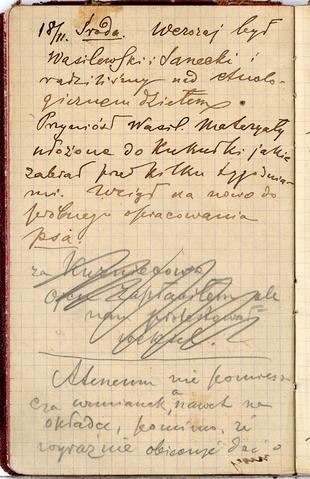 18/II. Środa. Wczoraj był
Wasilewski i Sanecki i
radziliśmy nad etnolo-
gicznem dziełem.
Przyniósł Wasil. materyały
ułożone do Kukułki jakie
zabrał przed kilku tygodnia-
mi. Wziął na nowo do
próbnego opracowania
psa.
za
zapłaciłem ale
nam
weksel.
Ateneum nie pomiesz-
cza wzmianek, a nawet na
okładce, pomimo, iż
wyraźnie obiecuje dać